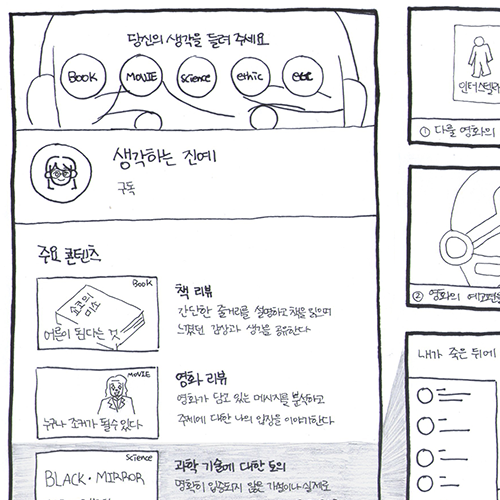 당신의 생각을 들려 주세요
BOOK
MOVIE
Science
ethic
etc
생각하는 진예
구독
주요 콘텐츠
BOOK
쇼코의 미소
어른이 된다는 것
책 리뷰
간단한 줄거리를 설명하고 책을 읽으며
느꼈던 감상과 생각을 공유한다
MOVIE
누구나 조커가 될 수 있다
영화 리뷰
영화가 담고 있는 메시지를 분석하고
주제에 대한 나의 입장을 이야기한다
Science
BLACK·MIRROR
과학 기술에 대한 논의
명확히 입증되지 않은 가설이나 실제로
인터스텔라
① 다룰 영화의
② 영화의 예고편
내가 죽은 뒤에